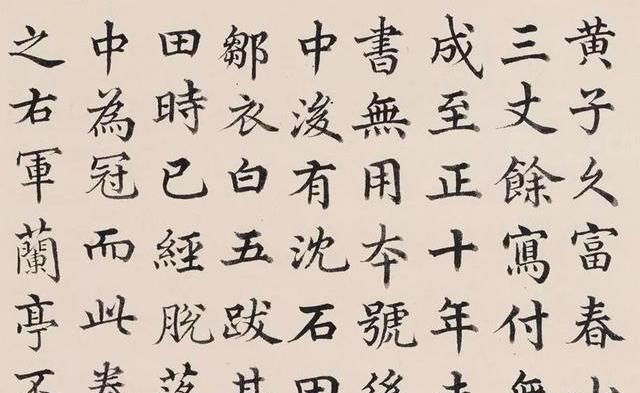 黄子久富春山
三丈餘寫付無
成至正十年
書無用本號後
中浚有沈石田
鄒衣白五跋其
田時已經脫落
中為冠而此卷
之右軍蘭亭不